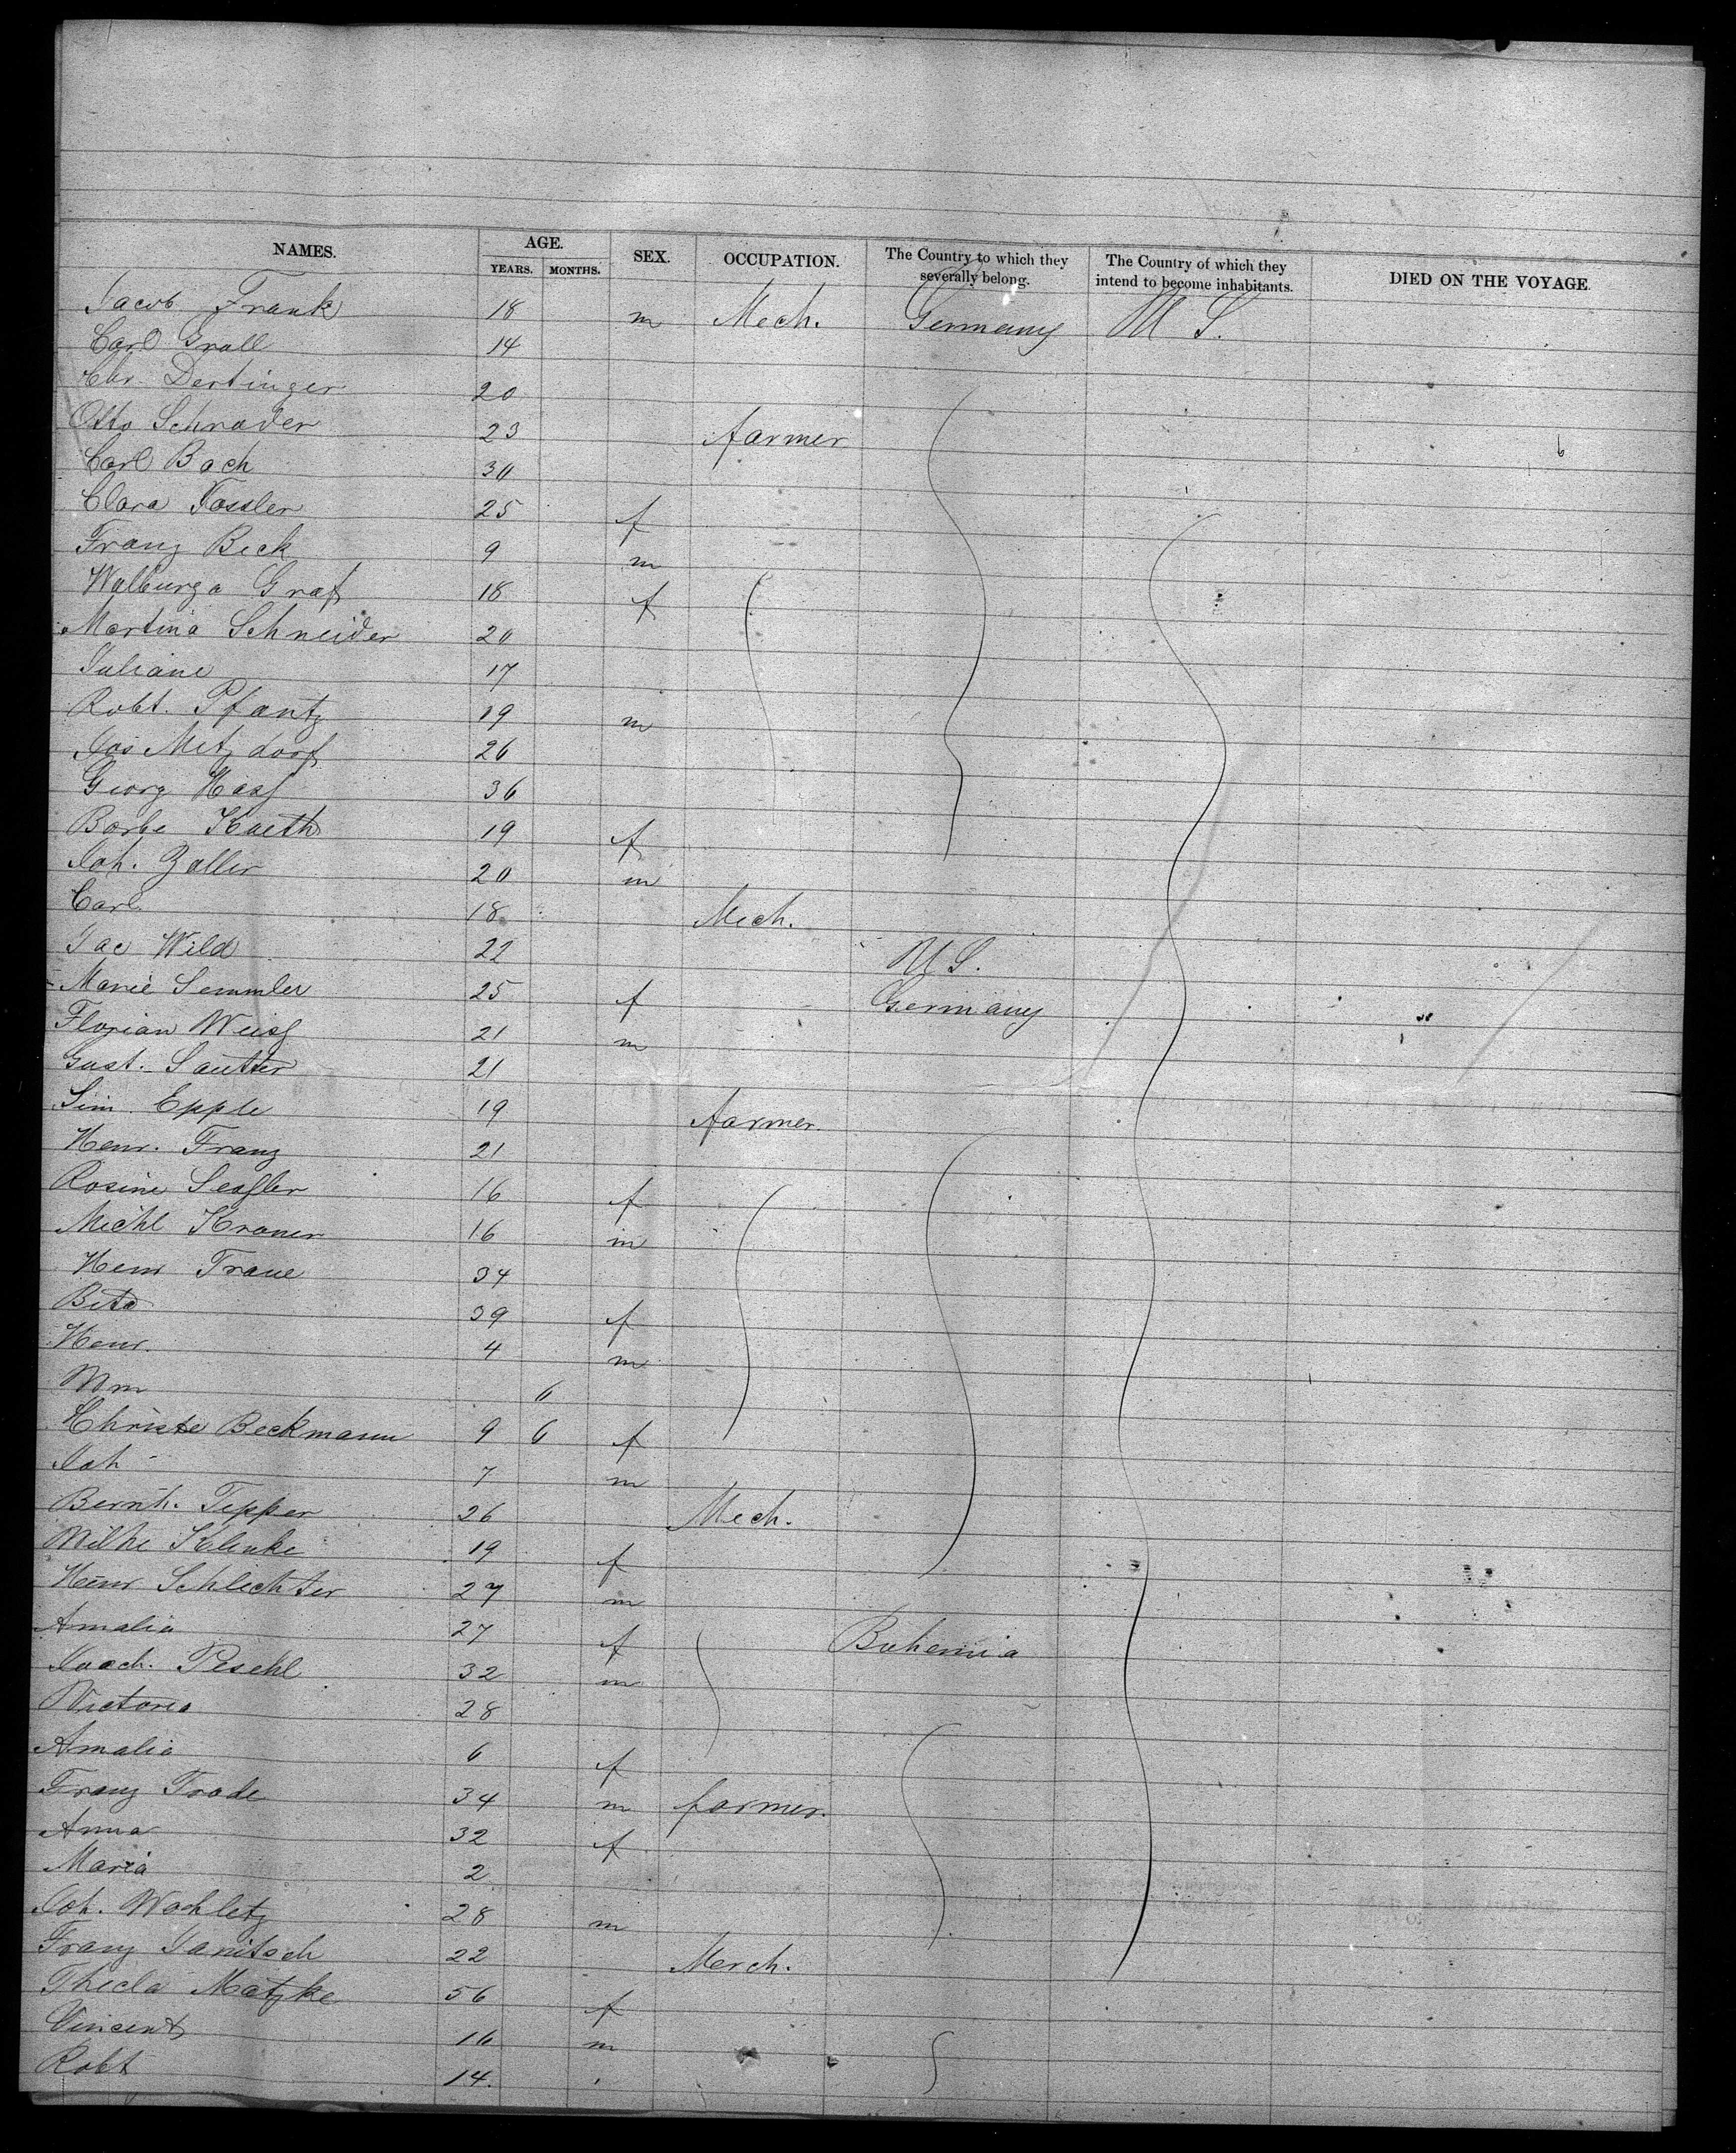 NAMES. AGE. SEX. OCCUPATION. The Country to which they severally belong. The Country of which they intend to become inhabitants. DIED ON THE VOYAGE.
YEARS. MONTHS.
Jacob Frank 18 m Mech. Germany U S.
Carl Grall 14
Chr. Dertinger 20
Otto Schrader 23 farmer
Carl Bach 30
Clara Fossler 25 f
Franz Beck 9 m
Walburga Graf 18 f
Martina Schneider 20
Juliane 17
Robt. Pfantz 19 m
Jos Metzdorf 26
Georg Hass 36
Barbe Kaeth 19 f
Joh. Zoller 20 m
Carl 18 Mech.
Jac Wild 22 U S.
Marie Semmler 25 f Germany
Florian Weiss 21 m
Gust. Sautter 21
Sim. Epple 19 farmer
Henr. Franz 21
Rosine Sessler 16 f
Michl Kroner 16 m
Henr Traue 34
Beta 39 f
Henr. 4 m
Wm 6
Christe Beckmann 9 6 f
Joh 7 m
Bernh. Tepper 26 Mech.
Wilhe Klenke 19 f
Heinr Schlichter 27 m
Amalia 27 f Bohemia
Joach. Peschl 32 m
Victoria 28
Amalia 6 f
Franz Trade 34 m farmer.
Anna 32 f
Maria 2
Joh. Wochletz 28 m
Franz Janitsch 22 Merch.
Thecla Matzke 56 f
Vincent 16 m
Robt 14.